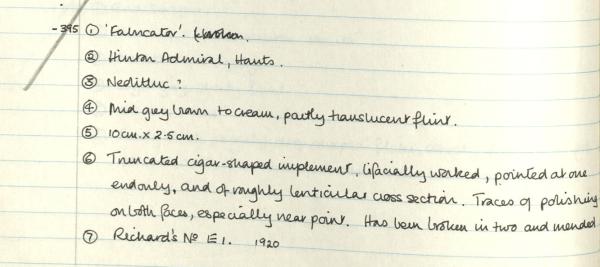 -395 ① 'Fabricator'. Broken.
② Hinton Admiral, Hants.
③ Neolithic?
④ Mid grey brown to cream, partly translucent flint.
⑤ 10cm. x 2.5cm.
⑥ Truncated cigar-shaped implement, bifacially worked, pointed at one
end only, and of roughly lenticular cross section. Traces of polishing
on both faces, especially near point. Has been broken in two and mended.
⑦ Richard's No E1. 1920